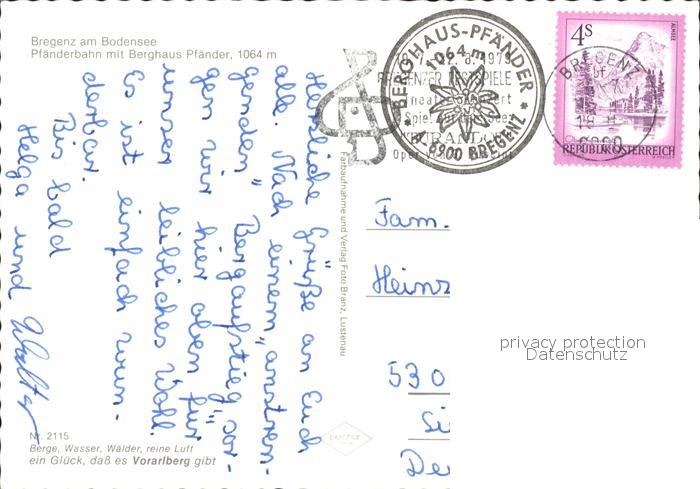 Bregenz am Bodensee
Pfänderbahn mit Berghaus Pfänder, 1064 m
Herzliche Grüße an Euch
alle. Nach einem „anstren-
genden" Bergaufstieg sor-
gen wir hier oben für
unser leibliches Wohl.
Es ist einfach wun-
derbar.
Bis bald
Helga und Walter
Nr. 2115
Berge, Wasser, Wälder, reine Luft
ein Glück, daß es Vorarlberg gibt
Farbaufnahme und Verlag Foto Branz, Lustenau
BERGHAUS-PFÄNDER
1064 m
A-6900 BREGENZ
BREGENZER FESTSPIELE
BREGENZ
6900
4 S
REPUBLIK ÖSTERREICH
Fam.
Heinz
530
Si
De
privacy protection
Datenschutz